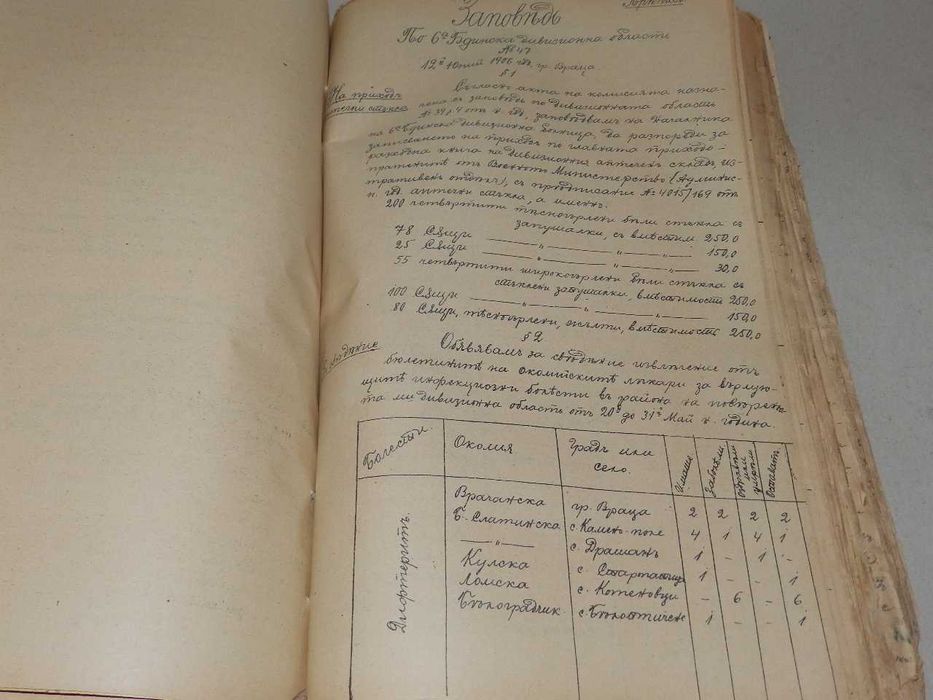 Заповѣдь
По 6а Бдинска дивизионна область
№ 47
12й Юний 1906 год. гр. Враца
§ 1
На приходъ
аптечни стъкла
Съгласъ акта на комисията назна-
чена съ заповѣдь по дивизионната область
отъ н. год. заповѣдвамъ на Началника
на 6а Бдинска дивизионна болница, да разпореди за
записването на приходъ по главната приходо-
разходна книга на дивизионния аптеченъ складъ из-
пратенитѣ отъ Военното Министерство (Админис-
тративенъ отдѣлъ), съ предписание № 4015/169 отъ
н. год. аптечни стъкла, а именно:
200 четвъртити тѣсногърлени бѣли стъкла съ
запушалки, съ вмѣстим. 250,0
78 Сѫщи —— „ —— „ —— 150,0
25 Сѫщи —— „ —— „ —— 30,0
55 четвъртити широкогърлени бѣли стъкла съ
стъклени запушалки, вмѣстимость 250,0
100 Сѫщи —— „ —— „ —— 150,0
80 Сѫщи, тѣсногърлени, жълти, вмѣстимость 250,0
§ 2
Обявявамъ за сведѣние извлѣчение отъ
бюлетинитѣ на околийскитѣ лѣкари за върлую-
щитѣ инфекциозни болѣсти въ района на повѣрена-
та ми дивизионна область отъ 20й до 31й Май н. година.
Болести. Околия Градъ или село. Имаше Заболѣли Оздравѣли или умрѣли Остават
Дифтеритъ.
Врачанска гр. Враца 2 2 2 2
Б.-Слатинска с. Камен-поле 4 1 4 1
—— „ —— с. Драшанъ 1 - 1 -
Кулска 1 - - 1
Ломска с. Котеновци - 6 - 6
Бѣлоградчик 1 - - 1